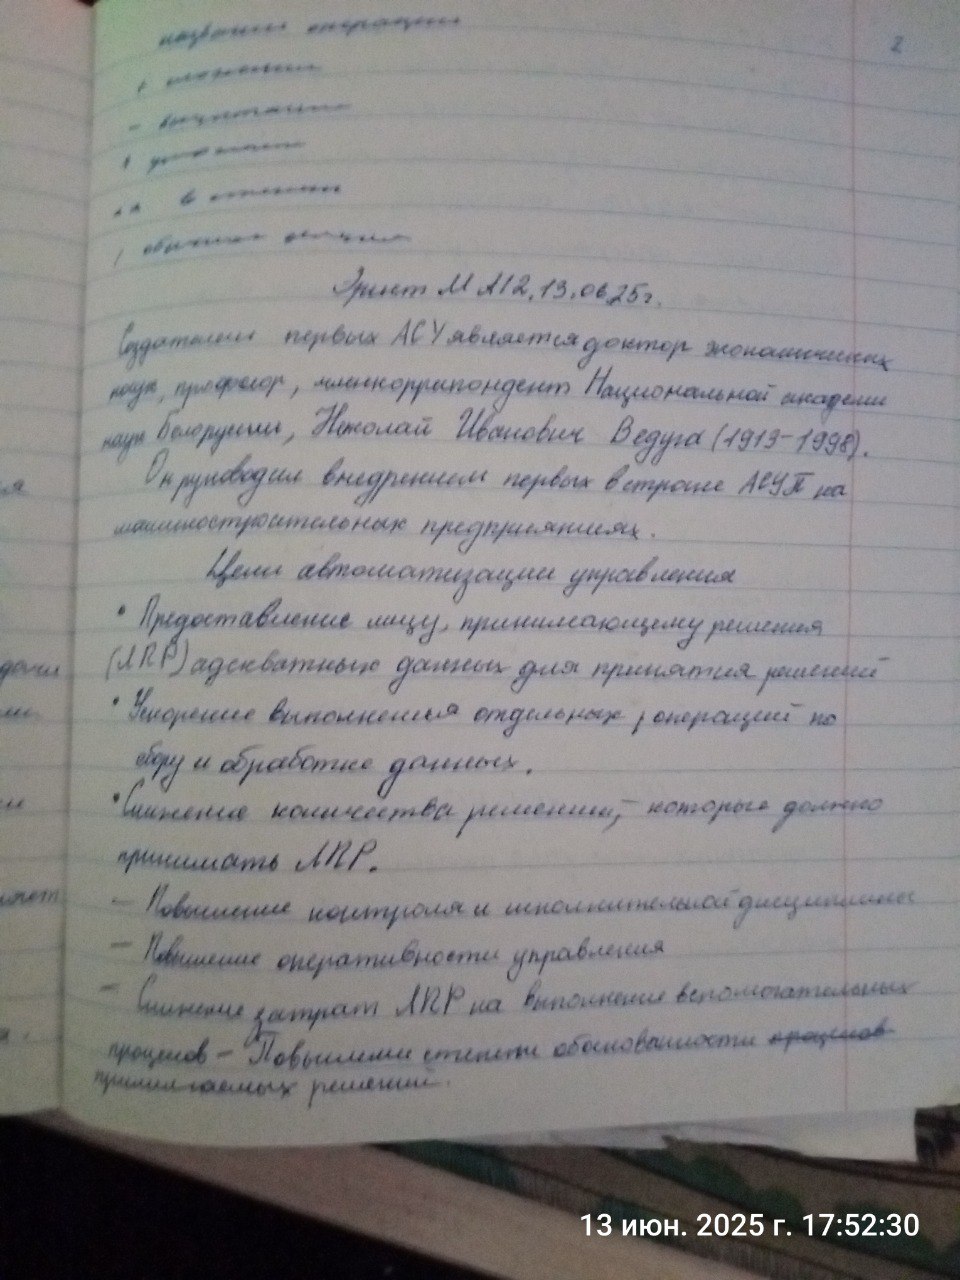 название операции
2
+ сложение
- вычитание
* умножение
** в степень
/ обычное деление
М А12, 13.06.25г.
Создателем первых АСУ является доктор экономических
наук, профессор, членкорриспондент Национальной академии
наук Белорусии, Николай Иванович Ведута (1913-1998).
Он руководил внедрением первых в стране АСУП на
машиностроительных предприятиях.
Цели автоматизации управления
• Предоставление лицу, принимающему решения
(ЛПР) адекватных данных для принятия решений
• Ускорение выполнения отдельных операций по
сбору и обработке данных.
• Снижение количества решений, которые должно
принимать ЛПР.
- Повышение контроля и исполнительной дисциплины
- Повышение оперативности управления
- Снижение затрат ЛПР на выполнение вспомогательных
процесов - Повышение степени обоснованности процесов
принимаемых решений.
13 июн. 2025 г. 17:52:30